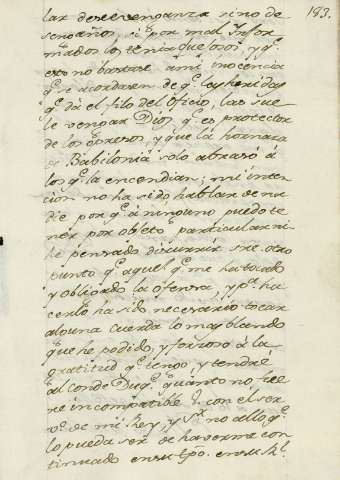 183.
lar de se venganza sino de
sengaños, si por mal Infor
mados los tenía quejosos, y q.e
esto no bastase a mi inocencia
q.e se acordasen de q.e las heridas
q.e da el filo del oficio, las sue
le vengar Dios q.e es protector
de los opresos, y que la hornaza
de Babilonia solo abrasó à
los q.e la encendian; mi inten
cion no ha sido hablar de na
die por q.e à ninguno puedo te
ner por objeto particular ni
he pensado discurrir sre otro
punto q.e aquel q.e me ha tocado
y obligado la ofensa, y p.a ha
cerlo ha sido necesario tocar
alguna cuerda lo mas blando
que he podido, y forzoso à la
gratitud q.e tengo, y tendré
al Conde Duq.e quanto no fue
re incompatible con el ser
v.o de mi Rey, y S.r no allo q.e
lo pueda ser de haverme con
tinuado en su tpo. en su